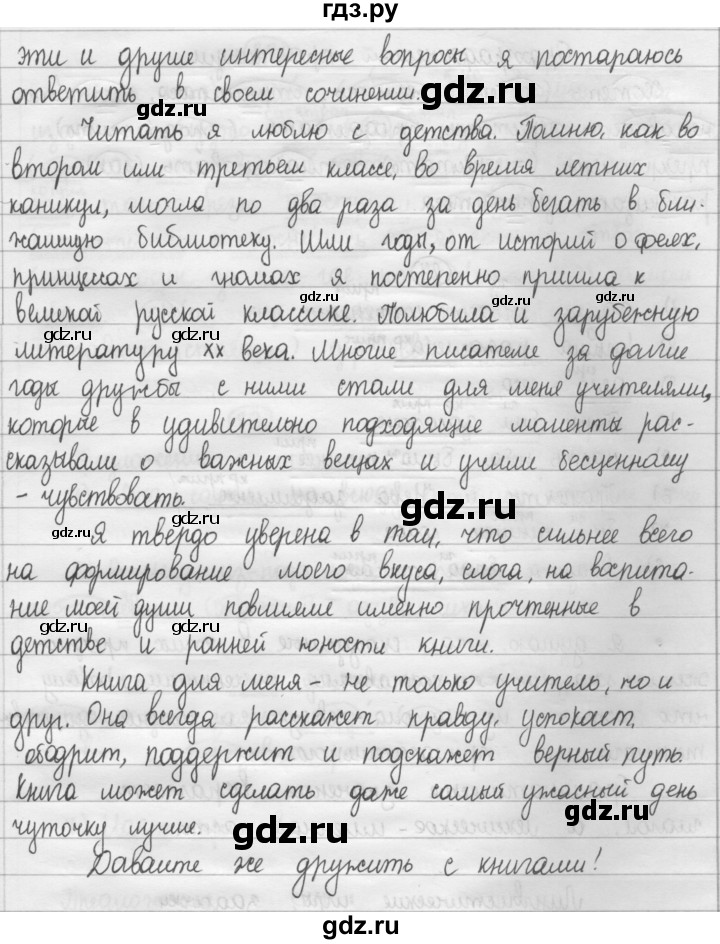 гдз.ру
эти и другие интересные вопросы я постараюсь
ответить в своем сочинении.
gdz.ru gdz.ru
Читать я люблю с детства. Помню, как во
втором или третьем классе, во время летних
каникул, могла по два раза за день бегать в бли-
gdz.ru gdz.ru
жайшую библиотеку. Шли годы, от историй о феях,
принцессах и гномах я постепенно пришла к
gdz.ru gdz.ru
великой русской классике. Полюбила и зарубежную
gdz.ru gdz.ru gdz.ru
литературу XX века. Многие писатели за долгие
годы дружбы с ними стали для меня учителями,
которые в удивительно подходящие моменты рас-
сказывали о важных вещах и учили бесценному
- чувствовать.
gdz.ru gdz.ru
Я твердо уверена в том, что сильнее всего
gdz.ru
на формирование моего вкуса, слога, на воспита-
ние моей души повлияли именно прочтенные в
gdz.ru gdz.ru gdz.ru
детстве и ранней юности книги.
Книга для меня - не только учитель, но и
друг. Она всегда расскажет правду, успокоит,
gdz.ru gdz.ru
ободрит, поддержит и подскажет верный путь.
Книга может сделать даже самый ужасный день
gdz.ru
чуточку лучше.
gdz.ru
Давайте же дружить с книгами!
gdz.ru